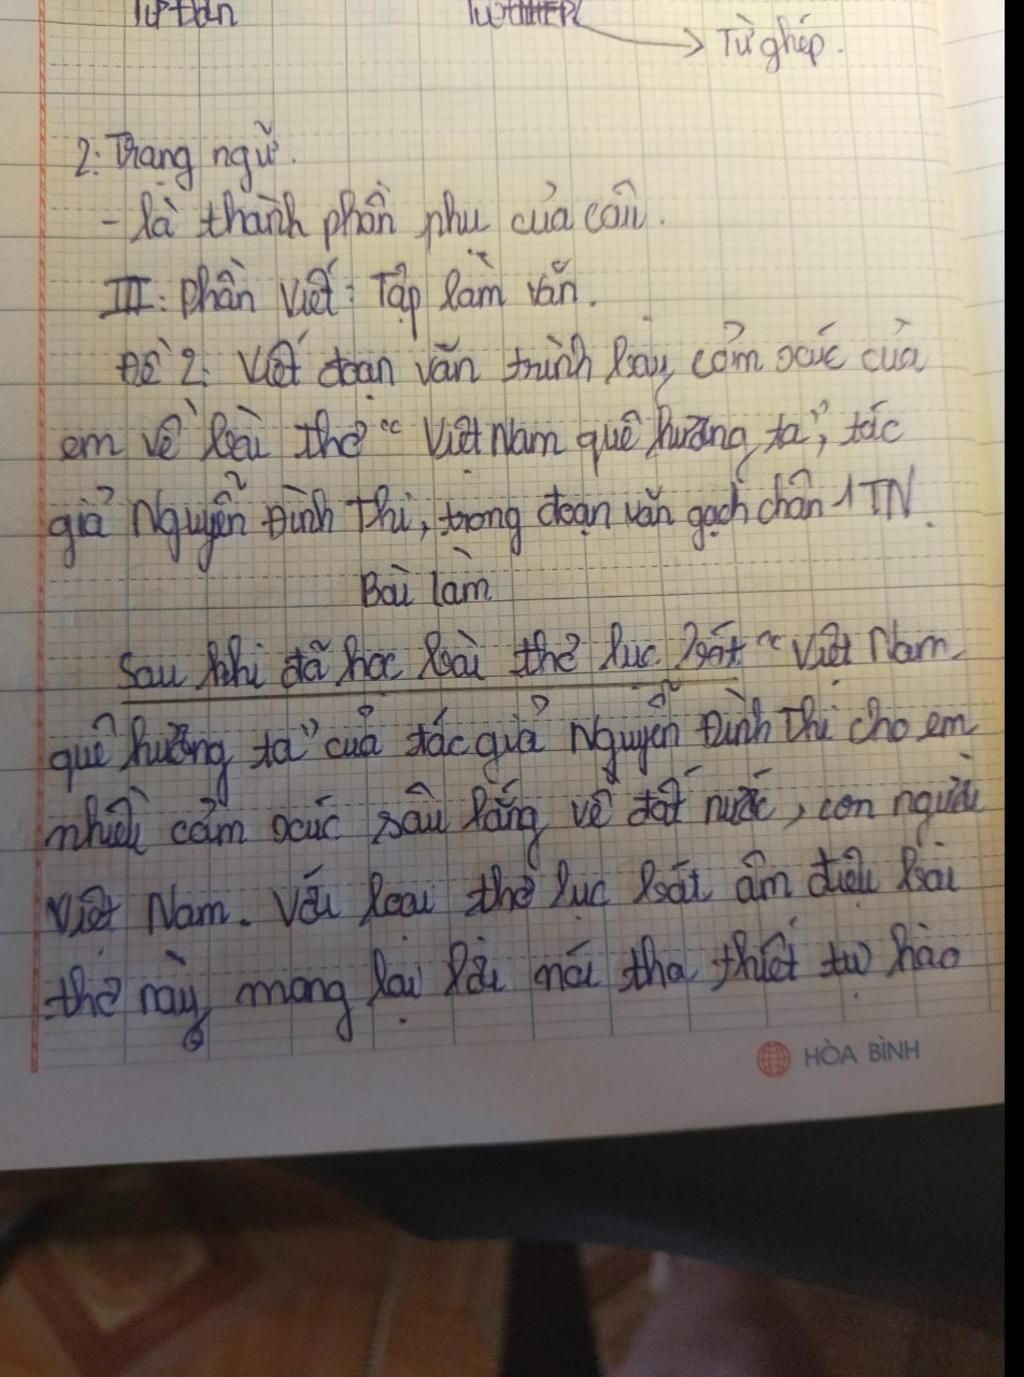 Từ Đơn
Từ ghép.
2: Trạng ngữ.
- là thành phần phụ của câu.
III: Phần Viết: Tập làm văn.
Đề 2: Viết đoạn văn trình bày cảm xúc của
em về bài thơ "Việt Nam quê hương ta", tác
giả Nguyễn Đình Thi, trong đoạn văn gạch chân 1 TN.
Bài làm
Sau khi đã học bài thơ lục bát "Việt Nam
quê hương ta" của tác giả Nguyễn Đình Thi cho em
nhiều cảm xúc sâu lắng về đất nước, con người
Việt Nam. Với loại thơ lục bát âm điệu bài
thơ này mang lại lời nói tha thiết tự hào
HÒA BÌNH